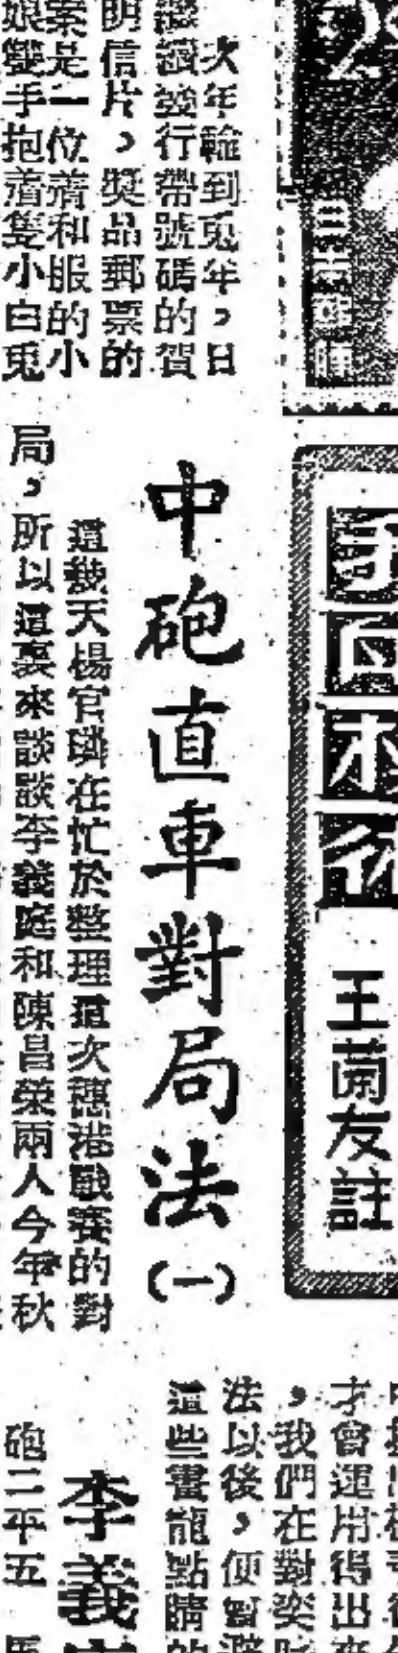 次年輪到兎年，日
繼續發行帶號碼的賀
明信片，獎品郵票的
案是一位着和服的小
娘雙手抱着隻小白兎
王蘭友註
中砲直車對局法(一)
這幾天楊官璘在忙於整理這次穗港戰賽的對
局，所以這裏來談談李義庭和陳昌榮兩人今年秋
才會運用得出
，我們在對
法以後，便暫
這些畫龍點睛的
李義
砲二平五 馬